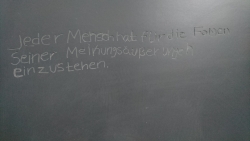 Jeder Mensch hat für die Folgen
Seiner Meinungsäußerungen
einzustehen.